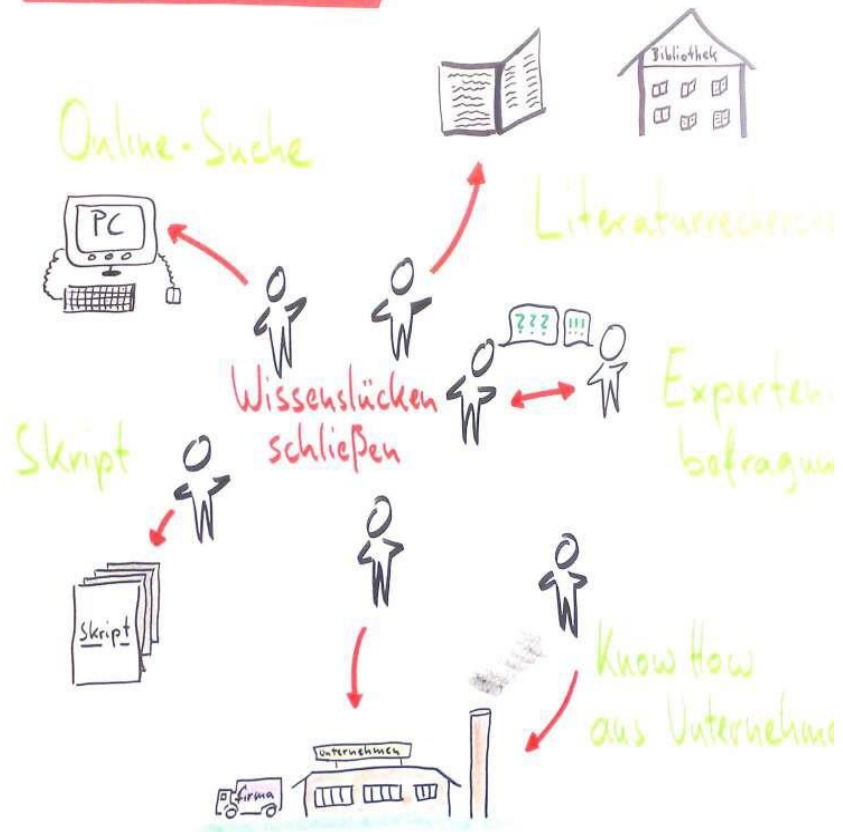 Bibliothek
Online-Suche
PC
Literaturrecherche
??? !!!
Wissenslücken
schließen
Experten-
befragun
Skript
Skript
Know How
aus Unternehme
Unternehmen
firma